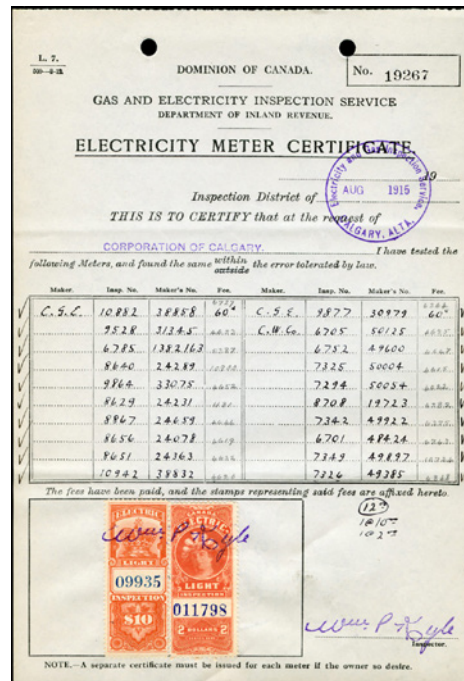 L. 7.
DOMINION OF CANADA.
No. 19267
GAS AND ELECTRICITY INSPECTION SERVICE
DEPARTMENT OF INLAND REVENUE.
ELECTRICITY METER CERTIFICATE.
19
Electricity and Gas Inspection Service,
AUG 1915
CALGARY, ALTA.
Inspection District of
THIS IS TO CERTIFY that at the request of
CORPORATION OF CALGARY. I have tested the
following Meters, and found the same within outside the error tolerated by law.
Maker. Insp. No. Maker's No. Fee. Maker. Insp. No. Maker's No. Fee.
C.G.E. 10882 38858 60 C.G.E. 9877 30979 60
9528 31345 C.W.Co. 6705 50125
6785 1382163 6752 49600
8640 24289 7325 50004
9864 33075 7294 50054
8629 24231 8708 19723
8867 24659 7342 49922
8656 24078 6701 48424
8651 24363 7349 49897
10942 38832 7326 49385
The fees have been paid, and the stamps representing said fees are affixed hereto.
12
1@10
1@2
ELECTRIC
LIGHT
09935
INSPECTION
$10
CANADA
ELECTRIC
LIGHT
INSPECTION
011798
2 DOLLARS 2
Wm P Kyle
Wm P Kyle
Inspector.
NOTE.—A separate certificate must be issued for each meter if the owner so desire.